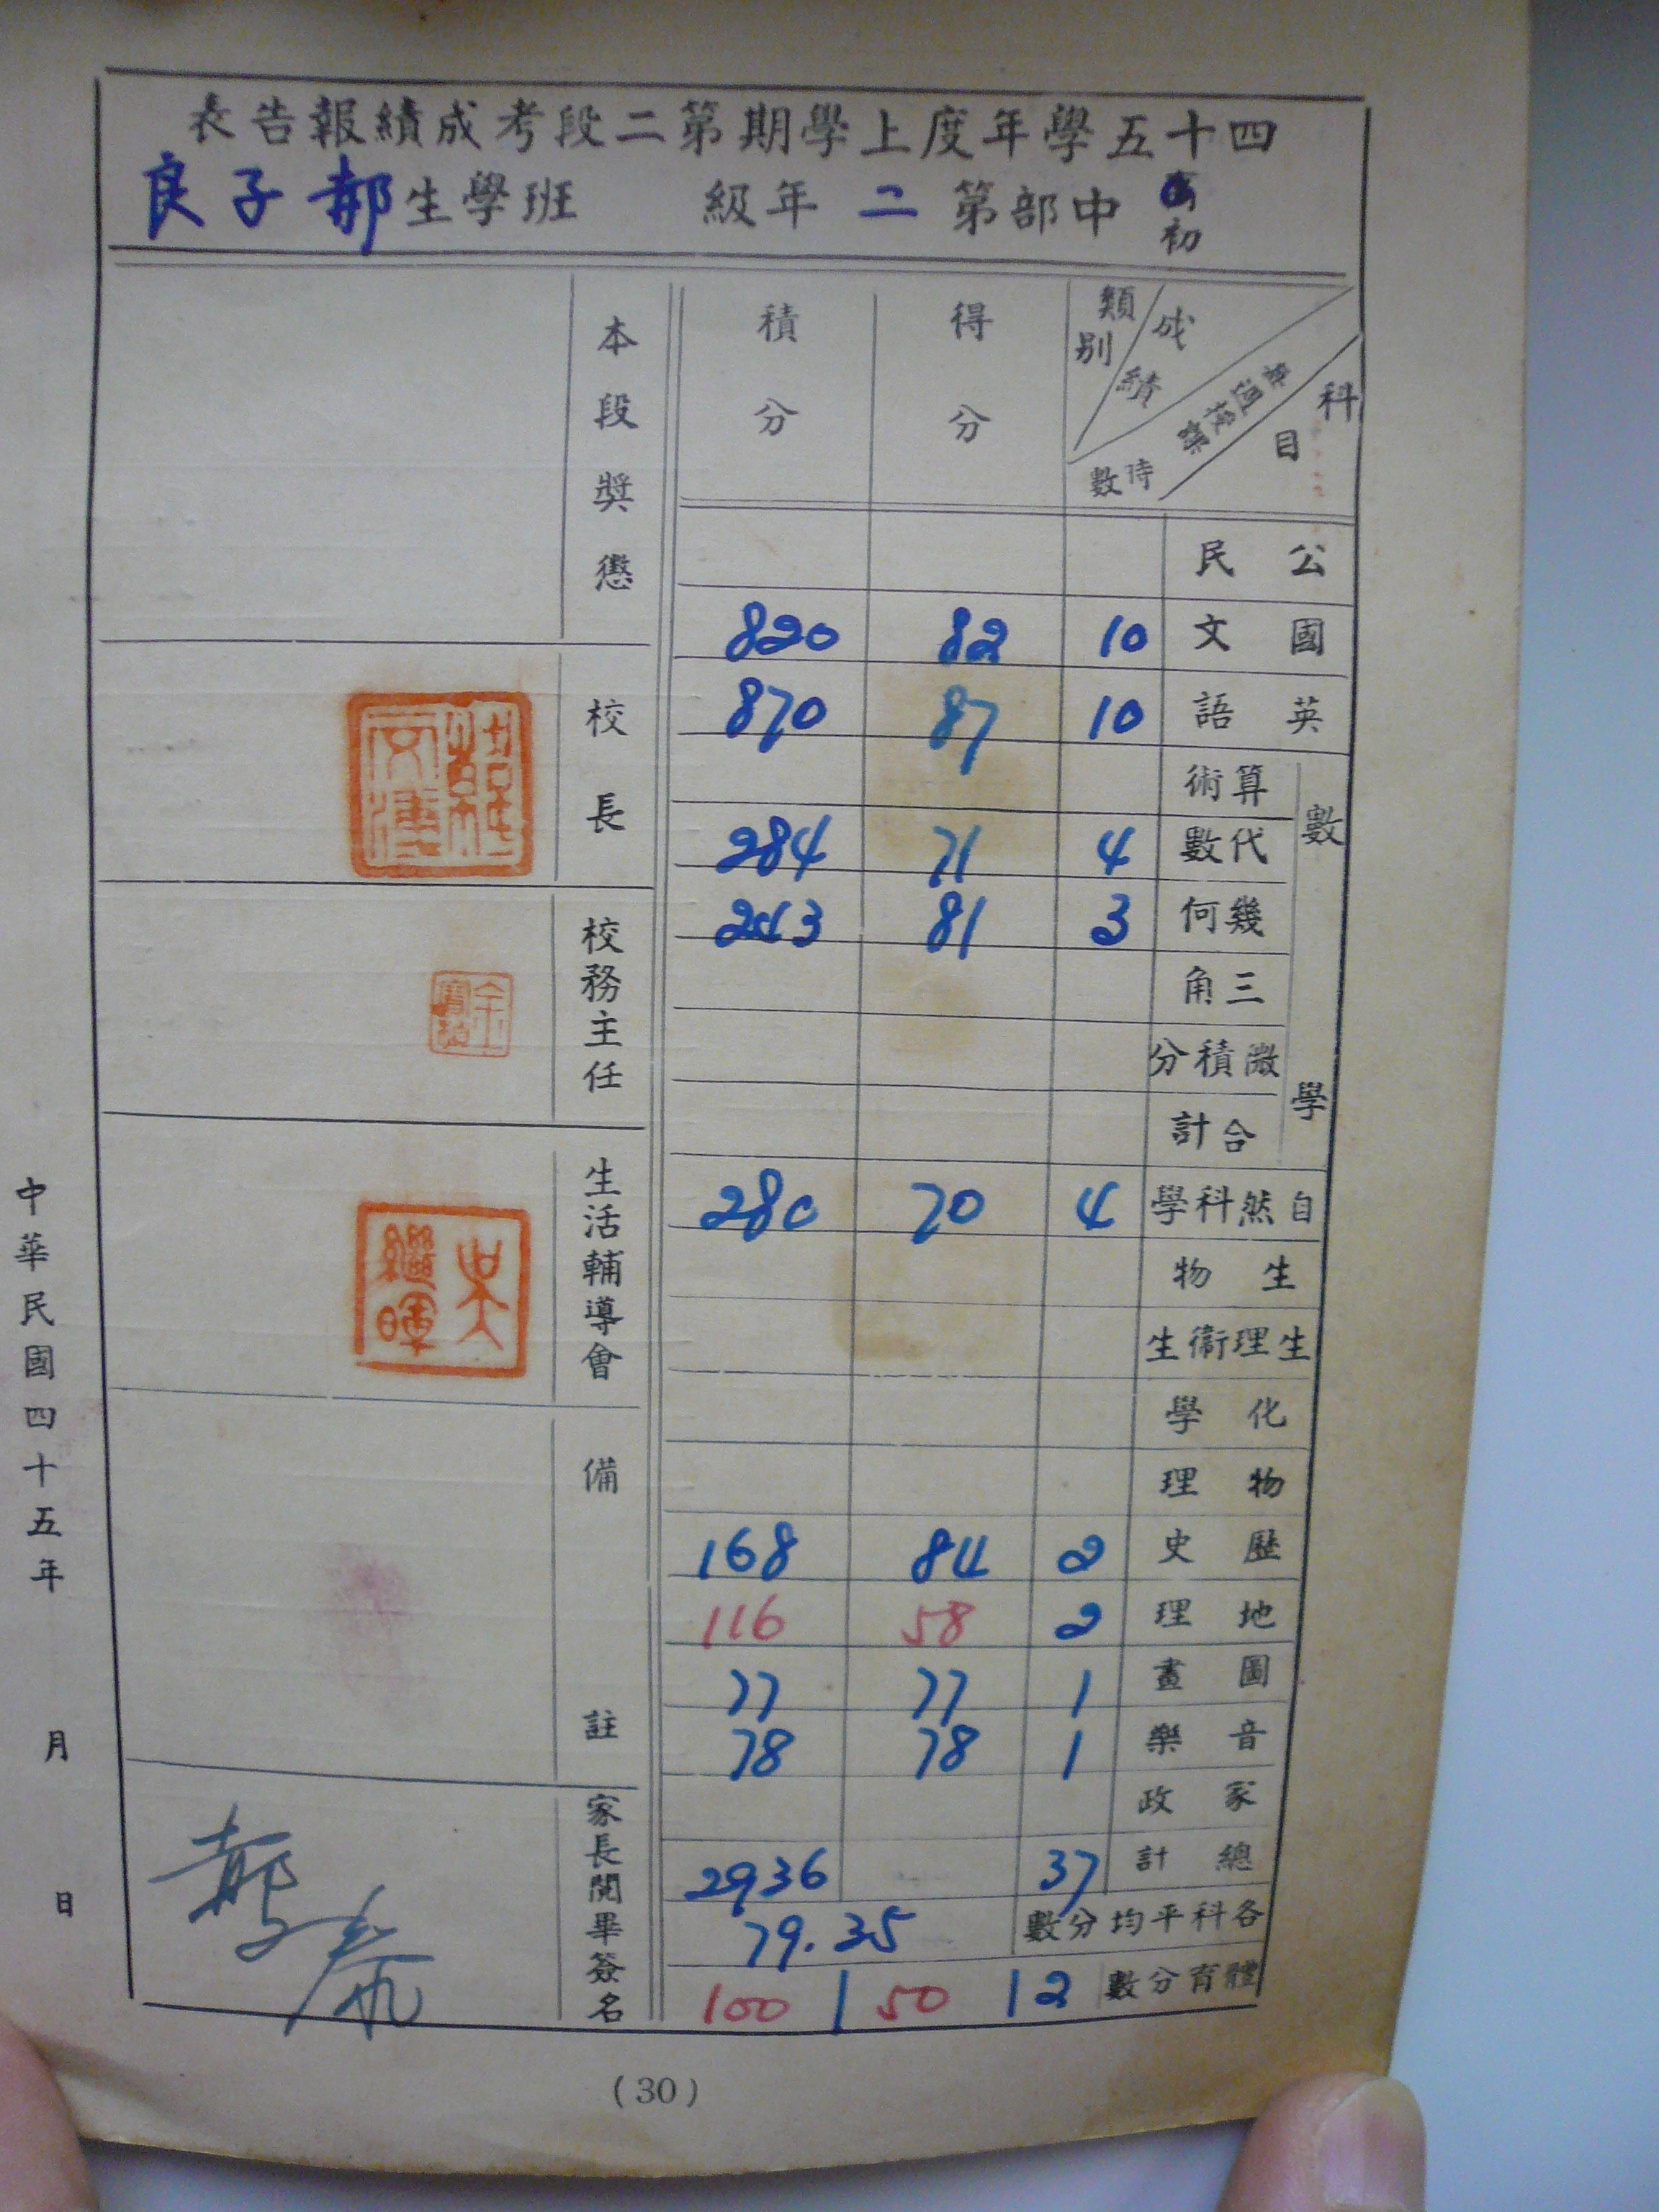 四十五學年度上學期第二段考成績報告表
初中部第二年級 班學生郝子良
科目
每週授課時數
成績
類別
得分
積分
本段獎懲
公民
國文 10 82 820
英語 10 87 870
數學
算術
代數 4 71 284
幾何 3 81 243
三角
微積分
合計
自然科學 4 70 280
生物
生理衞生
化學
物理
歷史 2 84 168
地理 2 58 116
圖畫 1 77 77
音樂 1 78 78
家政
總計 37 2936
各科平均分數 79.35
體育分數 2 50 100
校長
校務主任
生活輔導會
吳繼暉
備註
家長閱畢簽名
中華民國四十五年 月 日
(30)